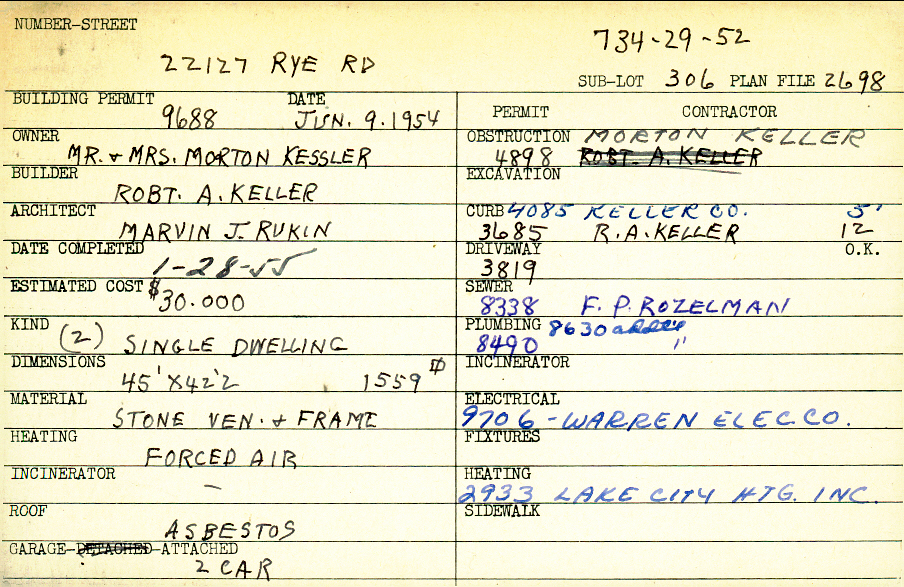 NUMBER-STREET
734-29-52
22127 RYE RD
SUB-LOT 306 PLAN FILE 2698
BUILDING PERMIT DATE
9688 JUN. 9. 1954
OWNER
MR. & MRS. MORTON KESSLER
BUILDER
ROBT. A. KELLER
ARCHITECT
MARVIN J. RUKIN
DATE COMPLETED
1-28-55
ESTIMATED COST
$30.000
KIND
(2) SINGLE DWELLING
DIMENSIONS
45' X 42'2 1559
MATERIAL
STONE VEN. & FRAME
HEATING
FORCED AIR
INCINERATOR
-
ROOF
ASBESTOS
GARAGE-DETACHED-ATTACHED
2 CAR
PERMIT CONTRACTOR
OBSTRUCTION MORTON KELLER
4898 ROBT. A. KELLER
EXCAVATION
CURB 4085 KELLER CO. 5'
3685 R. A. KELLER 12
DRIVEWAY O.K.
3819
SEWER
8338 F. P. ROZELMAN
PLUMBING 8630
8490 "
INCINERATOR
ELECTRICAL
9706 - WARREN ELEC. CO.
FIXTURES
HEATING
2933 LAKE CITY HTG. INC.
SIDEWALK